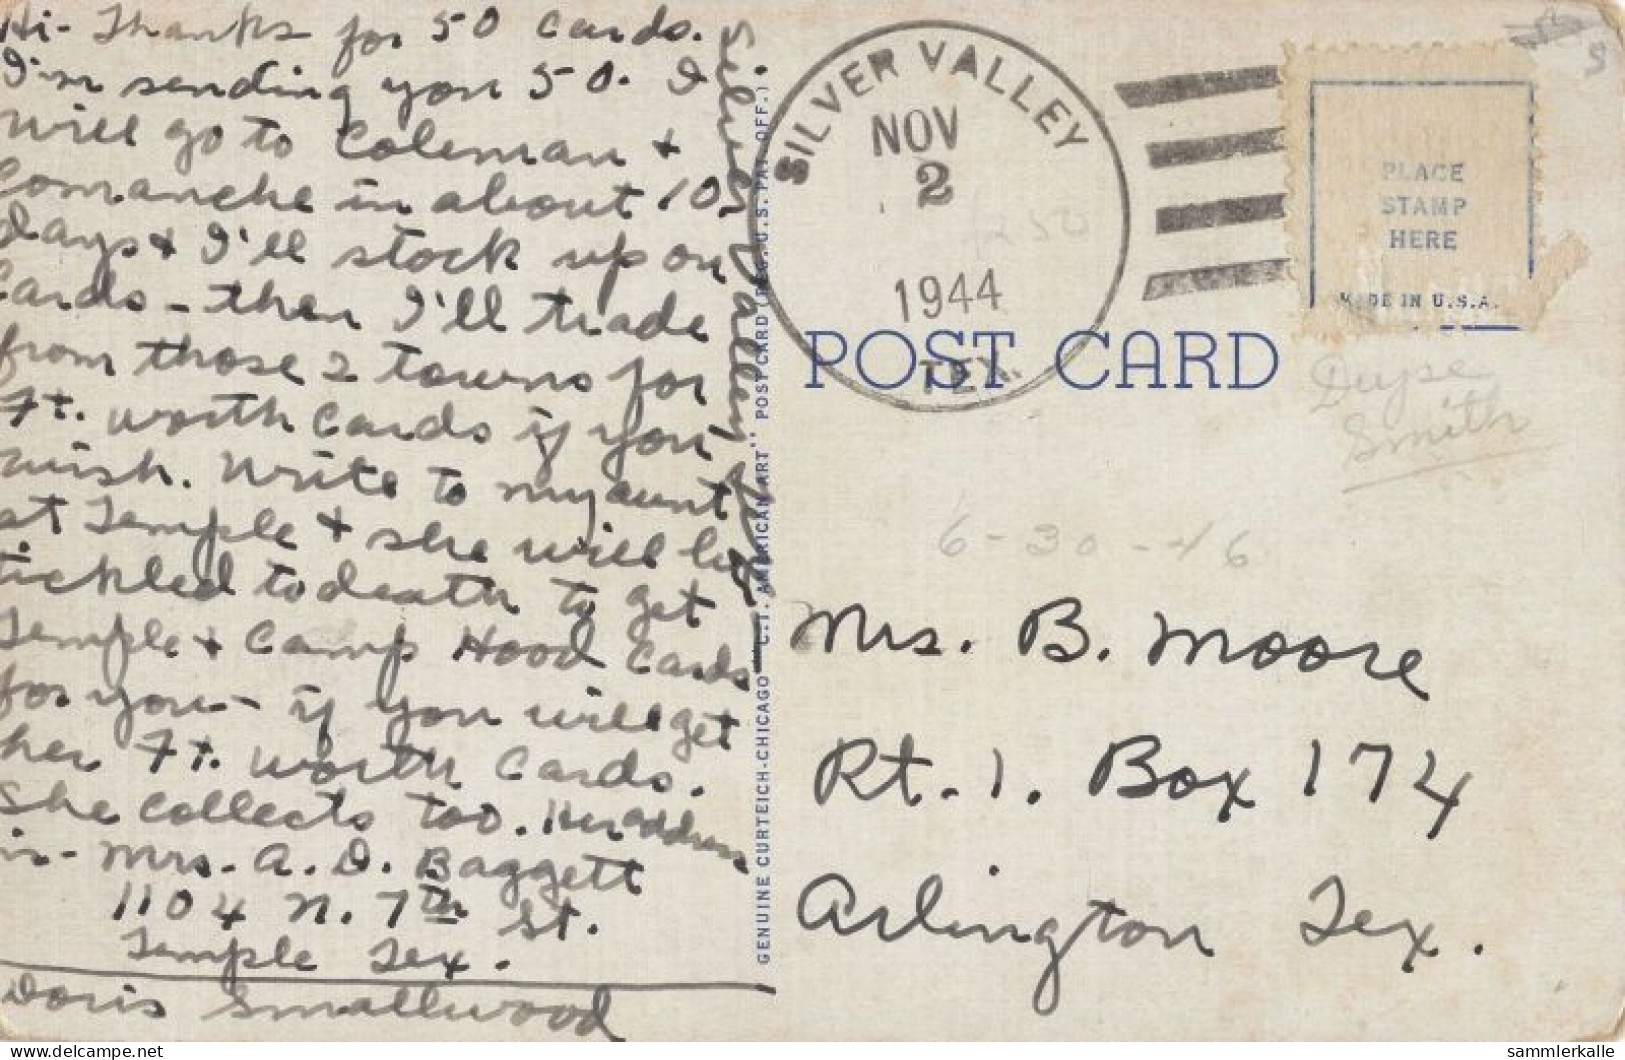 Hi - Thanks for 50 cards.
I'm sending you 50. I
will go to Coleman +
Comanche in about 10
days + I'll stock up on
Cards - then I'll trade
from those 2 towns for
Ft. Worth Cards if you
wish. Write to my aunt
at Temple + she will be
tickled to death to get
Temple + Camp Hood Cards
for you - if you will get
her Ft. Worth Cards.
She collects too. Her address
is - Mrs. A. D. Baggett
1104 N. 7th St.
Temple Tex.
Doris Smallwood
Silver Valley Tex
GENUINE CURTEICH-CHICAGO "C.T. AMERICAN ART" POST CARD (REG. U.S. PAT. OFF.)
SILVER VALLEY
NOV
2
1944
TEX.
PLACE
STAMP
HERE
MADE IN U.S.A.
POST CARD
Dupe
Smith
6-30-46
Mrs. B. Moore
Rt. 1. Box 174
Arlington Tex.
delcampe.net
sammlerkalle